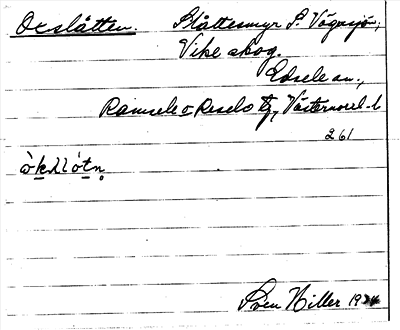 Oxslåtten. Slåttesmyr S. Vågnsjön;
Vike skog.
Edsele sn.,
Ramsele o Resele tg, Västernorrl. l
261
Sven Hiller